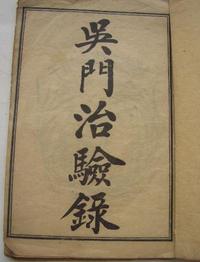 吳門治驗錄